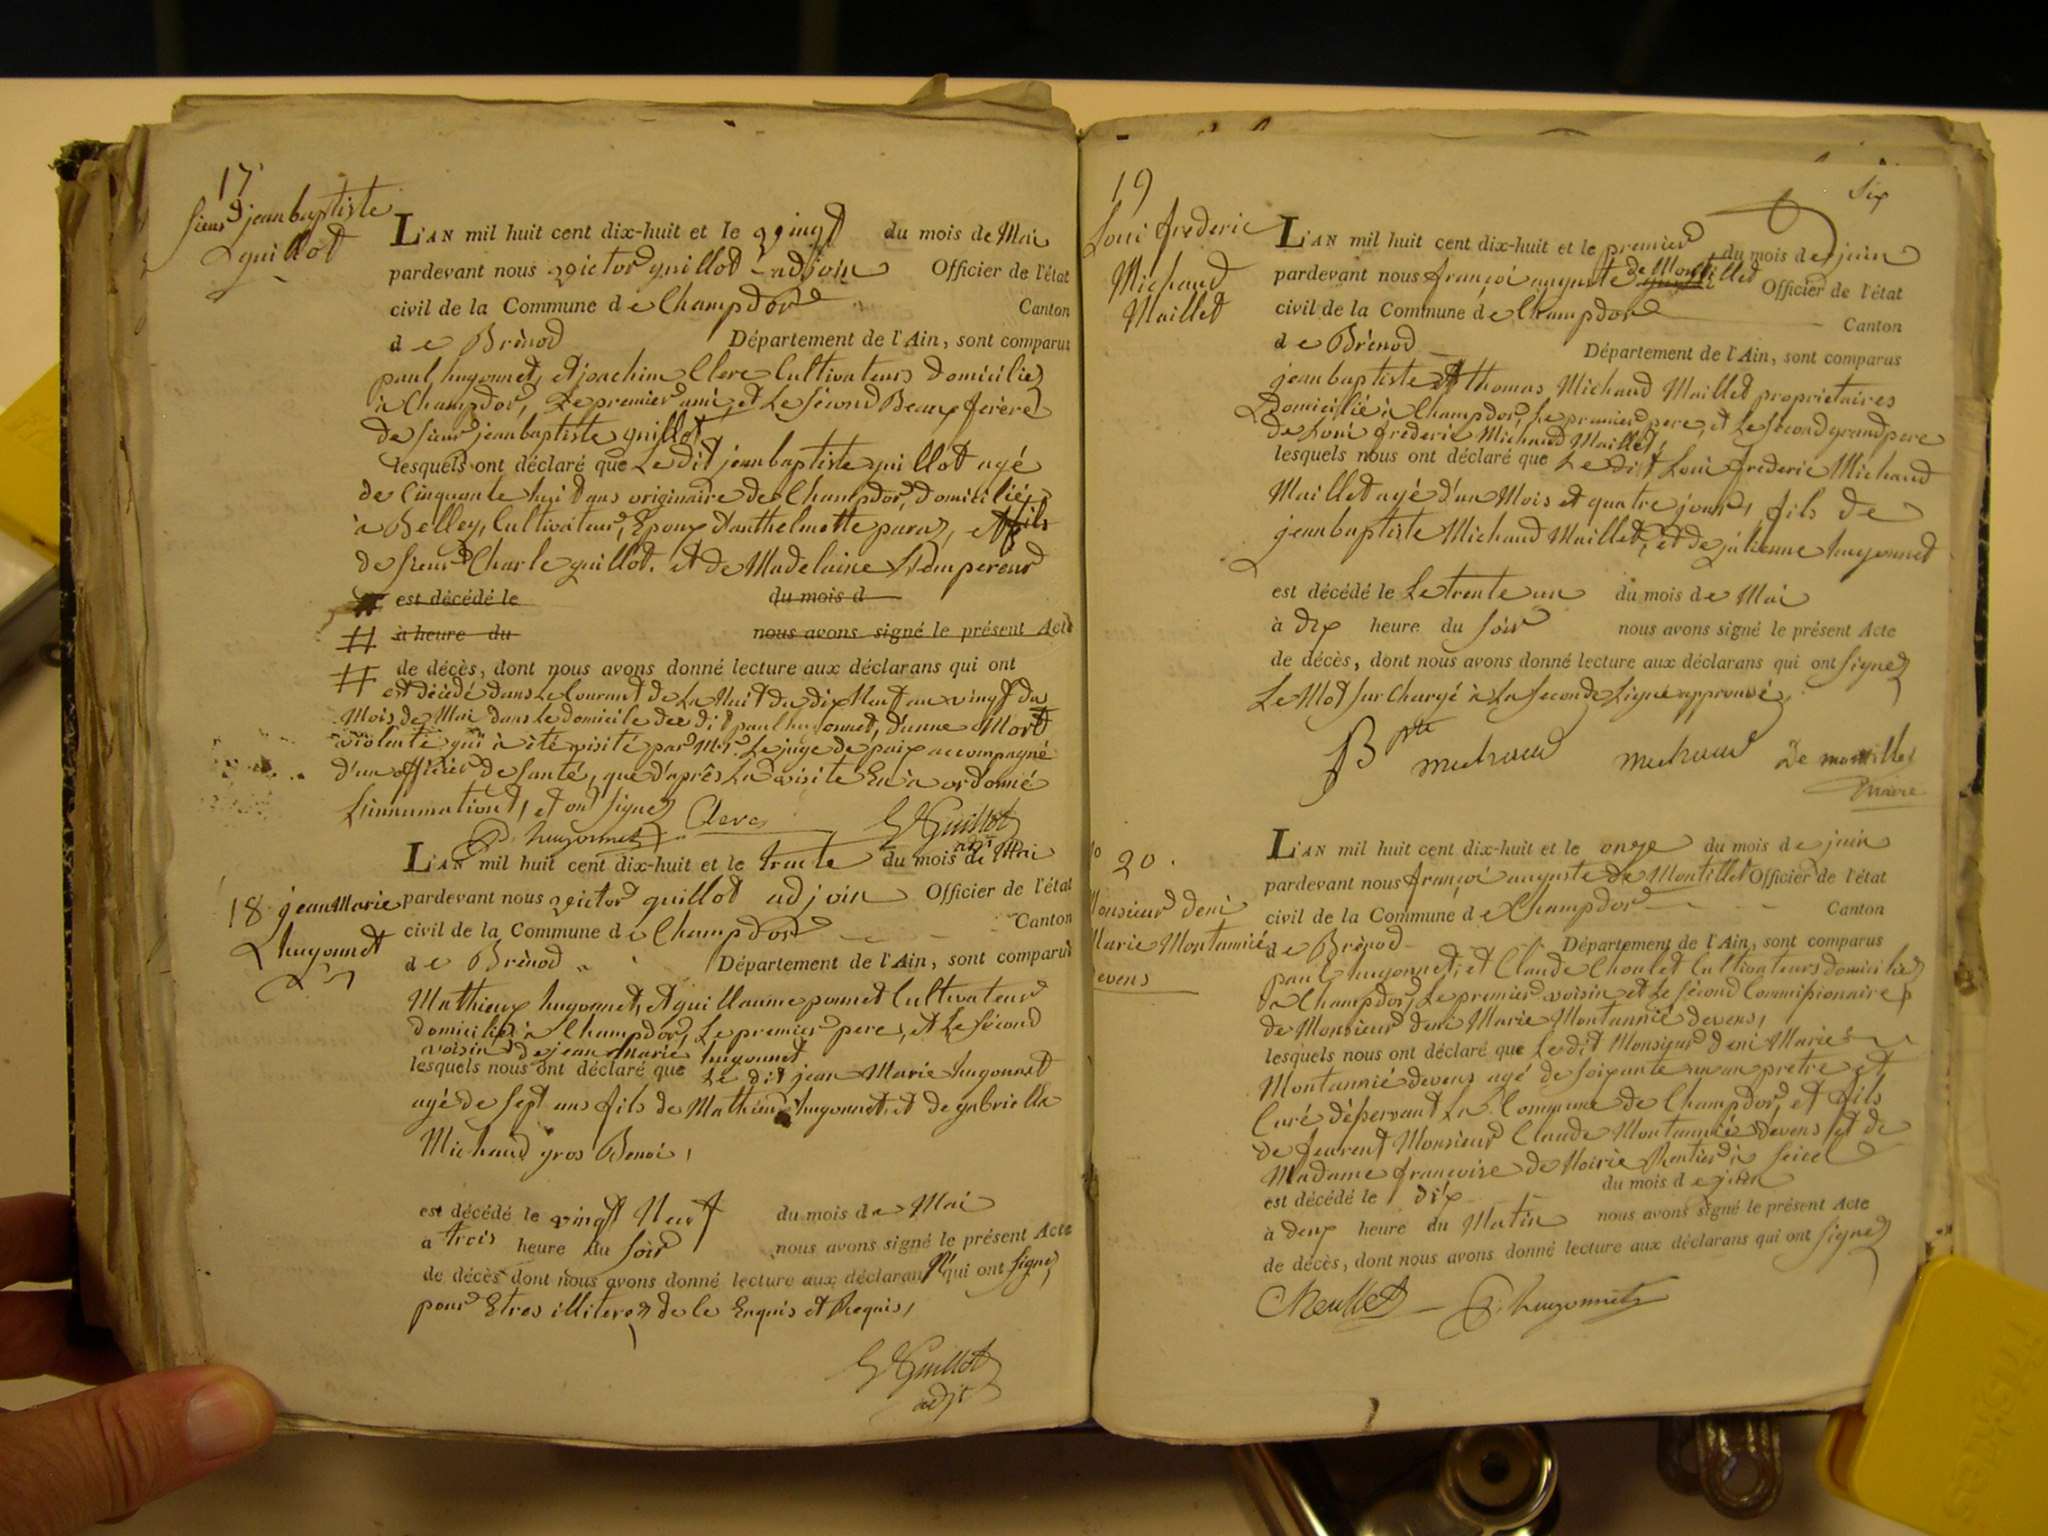 17
sieur jean baptiste
guillot
L'AN mil huit cent dix-huit et le vingt du mois de Mai
pardevant nous victor guillot adjoin Officier de l'état
civil de la Commune de Champdor Canton
de Brénod Département de l'Ain, sont comparus
paul hugonnet, et joachim Clerc Cultivateurs domiciliez
à Champdor, Le premier ami, et Le sécond Beaux frère
de sieur jean baptiste guillot
lesquels ont déclaré que Le dit jean baptiste guillot agé
de Cinquante huit ans originaire de Champdor, domicilié
à Belley, Cultivateur, Epoux d'anthelmette paraz, et fils
de sieur Charle guillot. et de Madelaine Lempereur
# est décédé le du mois d
# à heure du nous avons signé le présent Acte
# de décès, dont nous avons donné lecture aux déclarans qui ont
est décédé dans Le Courant de La Nuit du dix Neuf au vingt du
Mois de Mai dans Le domicile du dit paul hugonnet, d'unne Mort
violente qui à été visité par Mr. Le juge de paix accompagné
d'un officier de santé, que d'après La visite En à ordonné
L'innumationt, et ont signez
P. hugonnet Clerc Guillot
adjt
L'AN mil huit cent dix-huit et le trente du mois de Mai
18 jean Marie
hugonnet
pardevant nous victor guillot adjoin Officier de l'état
civil de la Commune de Champdor Canton
de Brénod Département de l'Ain, sont comparus
Mathieux hugonnet, et guillaume ponnet Cultivateur
domiciliez à Champdor, Le premier pere, et Le sécond
voisin de jean Marie hugonnet
lesquels nous ont déclaré que Le dit jean Marie hugonnet
agé de sept ans fils de Mathieu hugonnet, et de gabriella
Michaud gros Benoi,
est décédé le vingt Neuf du mois de Mai
a trois heure du soir nous avons signé le présent Acte
de décès dont nous avons donné lecture aux déclaran N' qui ont signez
pour Etres illiterez de le Enquis et Requis,
Guillot
adjt
six
19
Loui frederic
Michaud
Maillet
L'AN mil huit cent dix-huit et le premier du mois de juin
pardevant nous françoi auguste de Montillet Officier de l'état
civil de la Commune de Champdor Canton
de Brénod Département de l'Ain, sont comparus
jean baptiste et thomas Michaud Maillet propriétaires
Domicilié à Champdor, Le premier pere, et Le sécond grand pere
de Loui frederic Michaud Maillet,
lesquels nous ont déclaré que Le dit Loui frederic Michaud
Maillet agé d'un Mois et quatre jours, fils de
jean baptiste Michaud Maillet, et de julienne hugonnet
est décédé le Le trente un du mois de Mai
à dix heure du soir nous avons signé le présent Acte
de décès, dont nous avons donné lecture aux déclarans qui ont signez
Le Mot sur Chargé à La seconde Ligne approuvé,
Bpte michaud michaud De montillet
maire
20.
Monsieur deni
Marie Montannié
devens
L'AN mil huit cent dix-huit et le onze du mois de juin
pardevant nous françoi auguste de Montillet Officier de l'état
civil de la Commune de Champdor Canton
de Brénod Département de l'Ain, sont comparus
paul hugonnet, et Claude Choulet Cultivateurs domiciliez
à Champdor, Le premier voisin et Le sécond Commissionnaire
de Monsieur deni Marie Montannié devens,
lesquels nous ont déclaré que Le dit Monsieur deni Marie
Montannié devens agé de soixante un an pretre et
Curé désservant La Commune de Champdor, et fils
de feurent Monsieur Claude Montannié devens et de
Madame françoise de Noirie Rentier à seicel
est décédé le dix du mois de juin
à deux heure du Matin nous avons signé le présent Acte
de décès, dont nous avons donné lecture aux déclarans qui ont signez
Choullet P. hugonnet